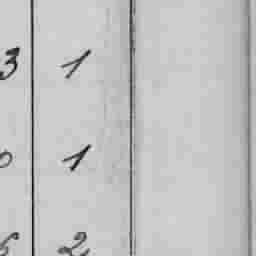 3 1
0 1
6 2